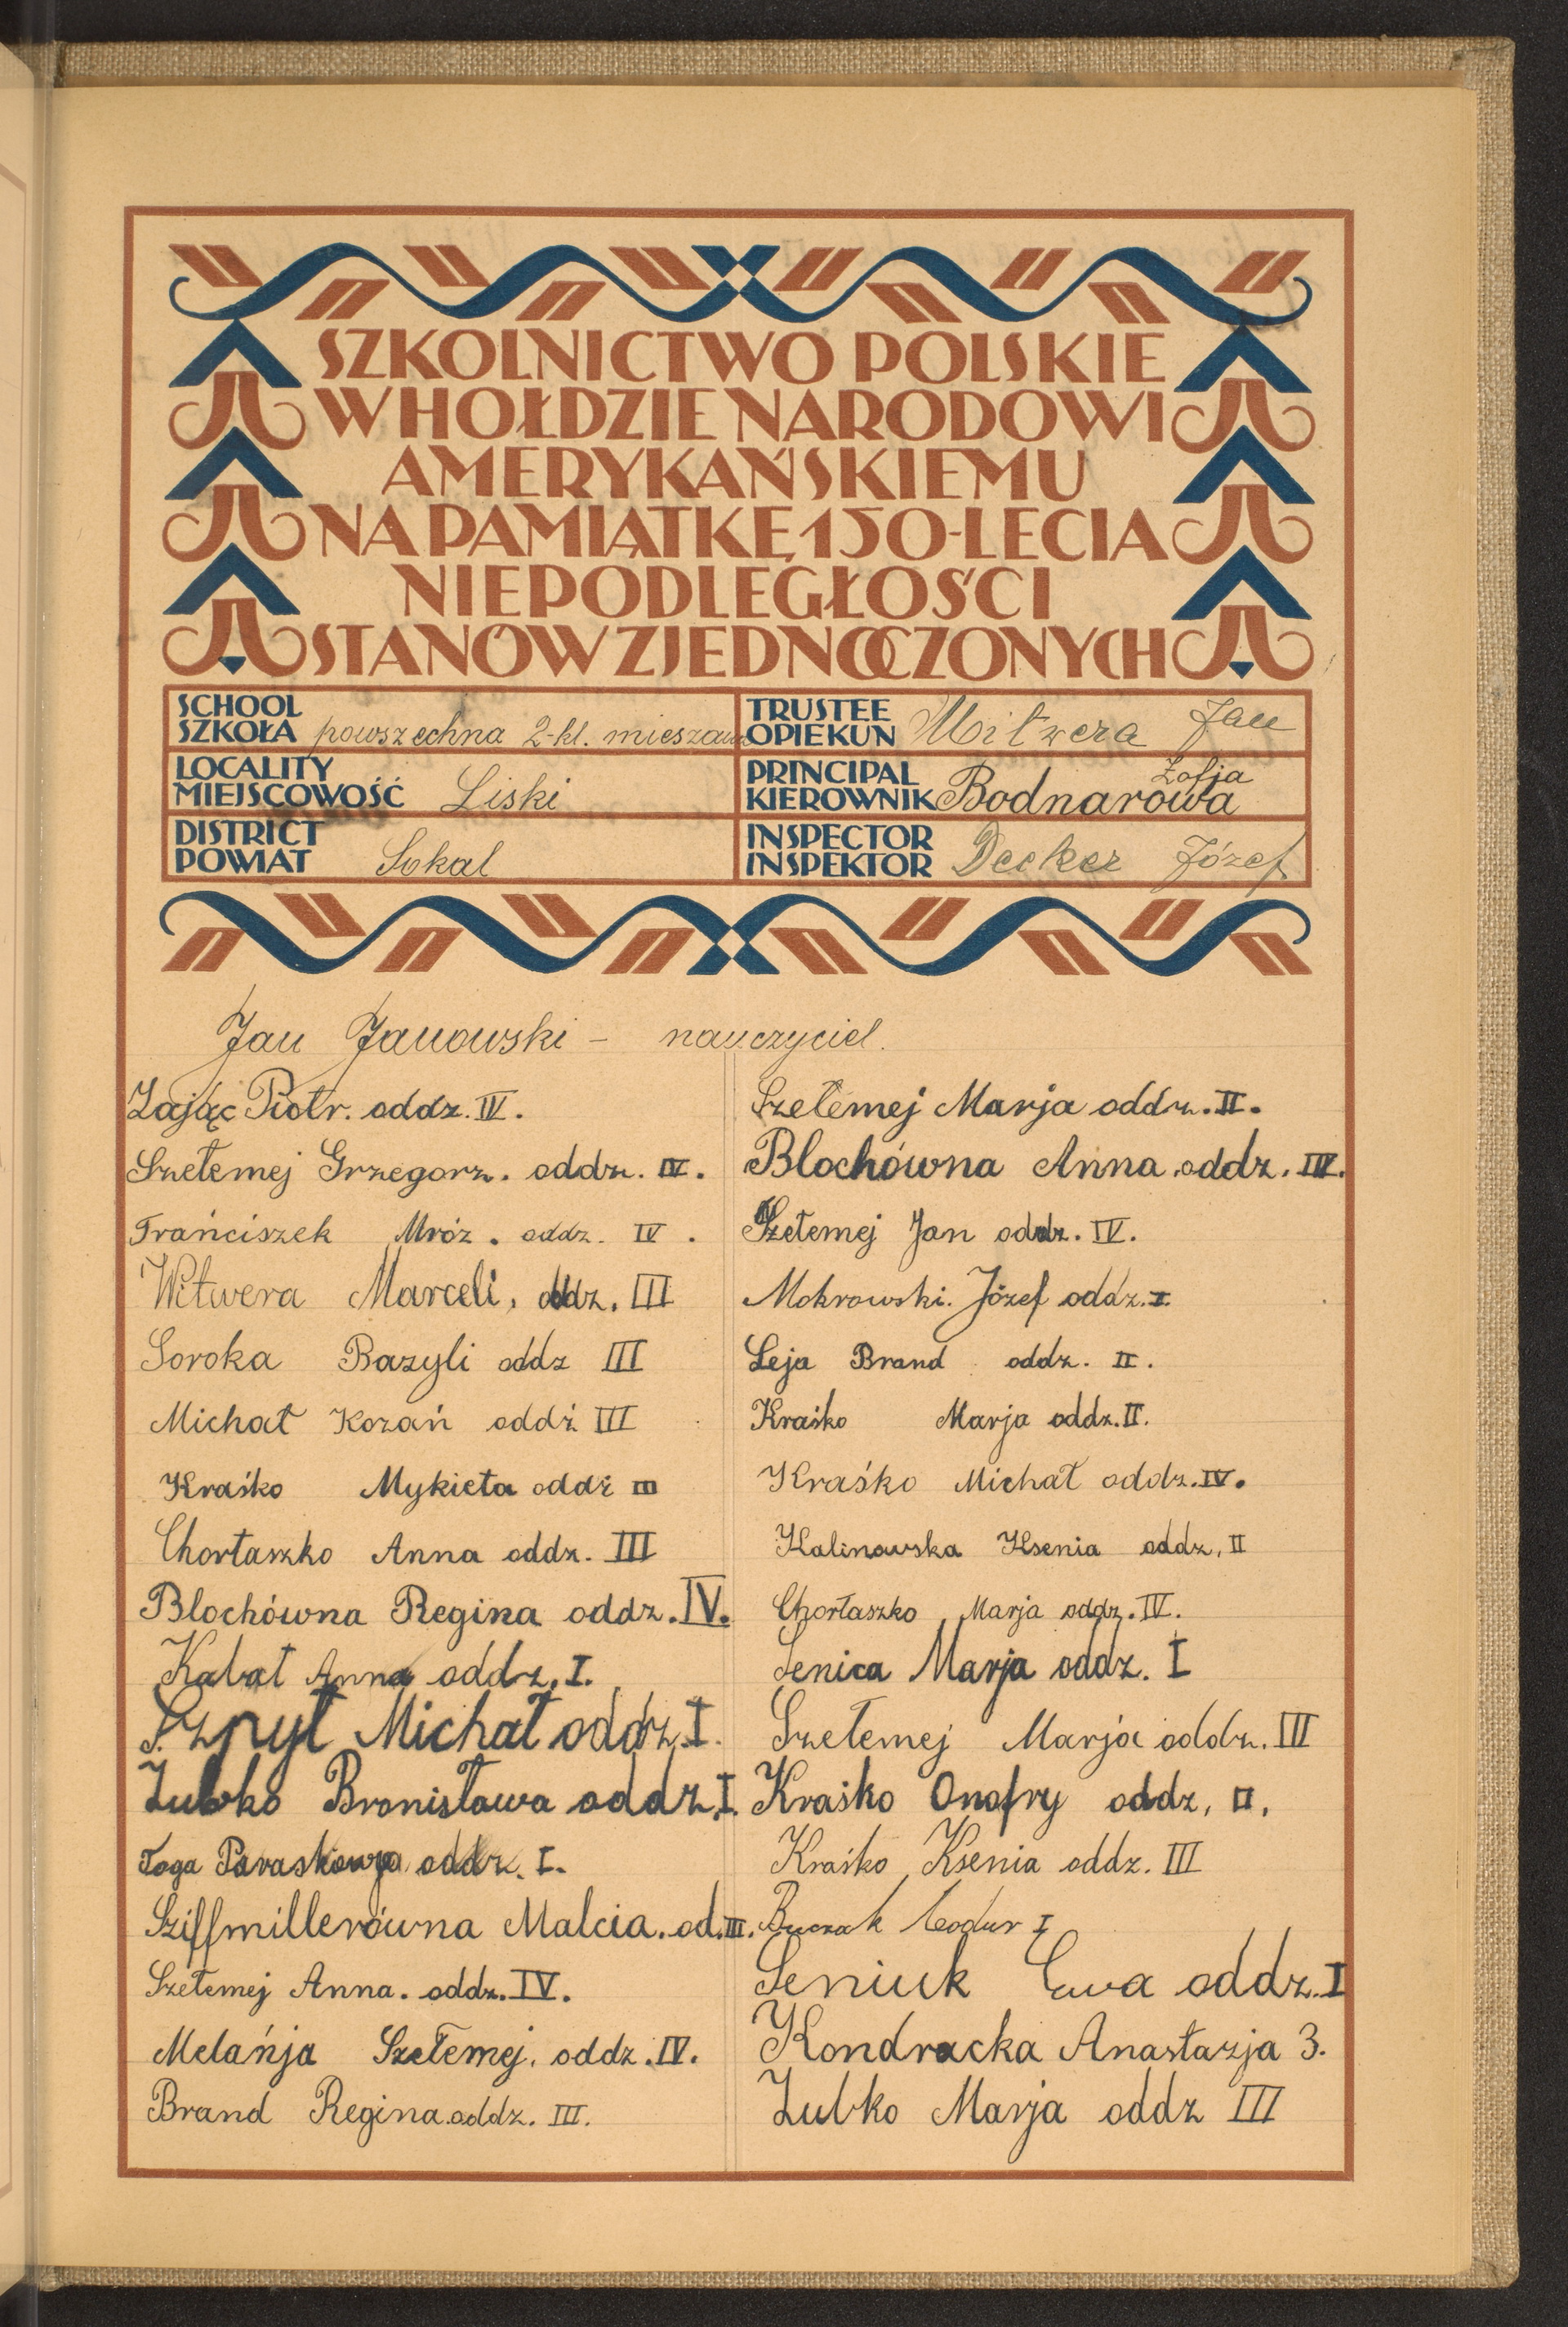 SZKOLNICTWO POLSKIE
W HOŁDZIE NARODOWI
AMERYKAŃSKIEMU
NA PAMIĄTKĘ 150-LECIA
NIEPODLEGŁOŚCI
STANÓW ZJEDNOCZONYCH
SCHOOL
SZKOŁA powszechna 2-kl. mieszana
TRUSTEE
OPIEKUN Witwera Jan
LOCALITY
MIEJSCOWOŚĆ Liski
PRINCIPAL
KIEROWNIK Bodnarowa Zofja
DISTRICT
POWIAT Sokal
INSPECTOR
INSPEKTOR Decker Józef
Jan Janowski – nauczyciel.
Zając Piotr. oddz. IV.
Szełemej Grzegorz. oddz. IV.
Frańciszek Mróz. oddz. IV.
Witwera Marceli, oddz. III
Soroka Bazyli oddz III
Michał Kozań oddź III
Kraśko Mykieta oddź III
Chortaszko Anna oddz. III
Blochówna Regina oddz. IV.
Kabat Anna oddz. I.
Szpyt Michał oddz. I.
Zubko Bronisława oddz. I.
Toga oddz. I.
Sziffmillerówna Malcia. od. III.
Szełemej Anna. oddz. IV.
Melańja Szełemej. oddz. IV.
Brand Regina. oddz. III.
Szełemej Marja oddz. II.
Blochówna Anna. oddz. IV.
Szełemej Jan oddz. IV.
Mokrowski. Józef oddz. I.
Leja Brand oddz. II.
Kraśko Marja oddz. II.
Kraśko Michał oddz. IV.
Kalinowska Ksenia oddz, II
Chortaszko Marja oddz. IV.
Senica Marja oddz. I
Szełemej Marja oddz. III
Kraśko Onofry oddz, II.
Kraśko Ksenia oddz. III
I
Seniuk Ewa oddz. I
Kondracka Anastazja 3.
Zubko Marja oddz III